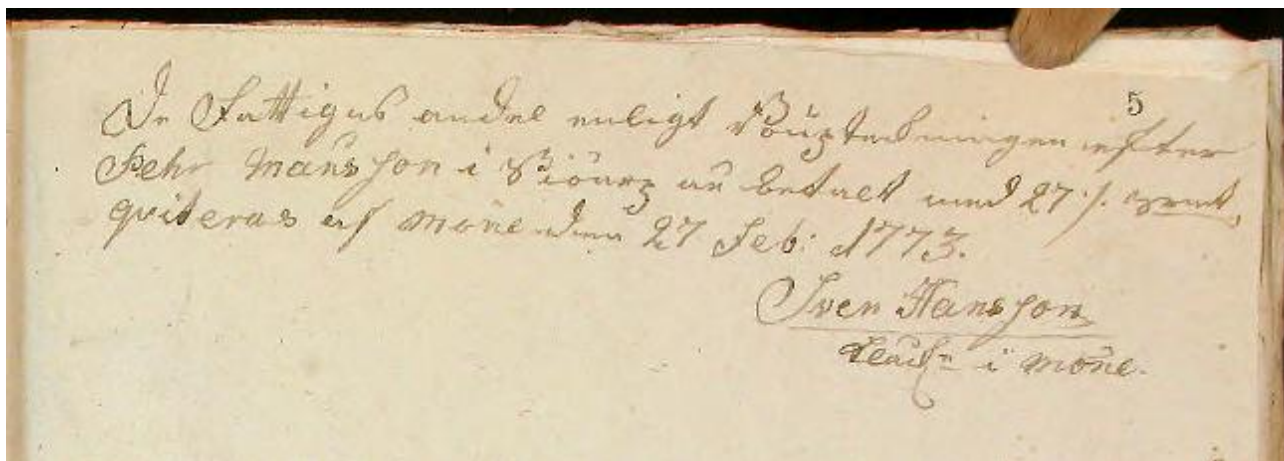 5
De Fattigas andel enligt Bouptekningen efter
Pehr Månsson i Siöarp är betalt med 27 /. smt,
qviteras af Möne den 27 Feb: 1773.
Sven Hansson
i Möne.